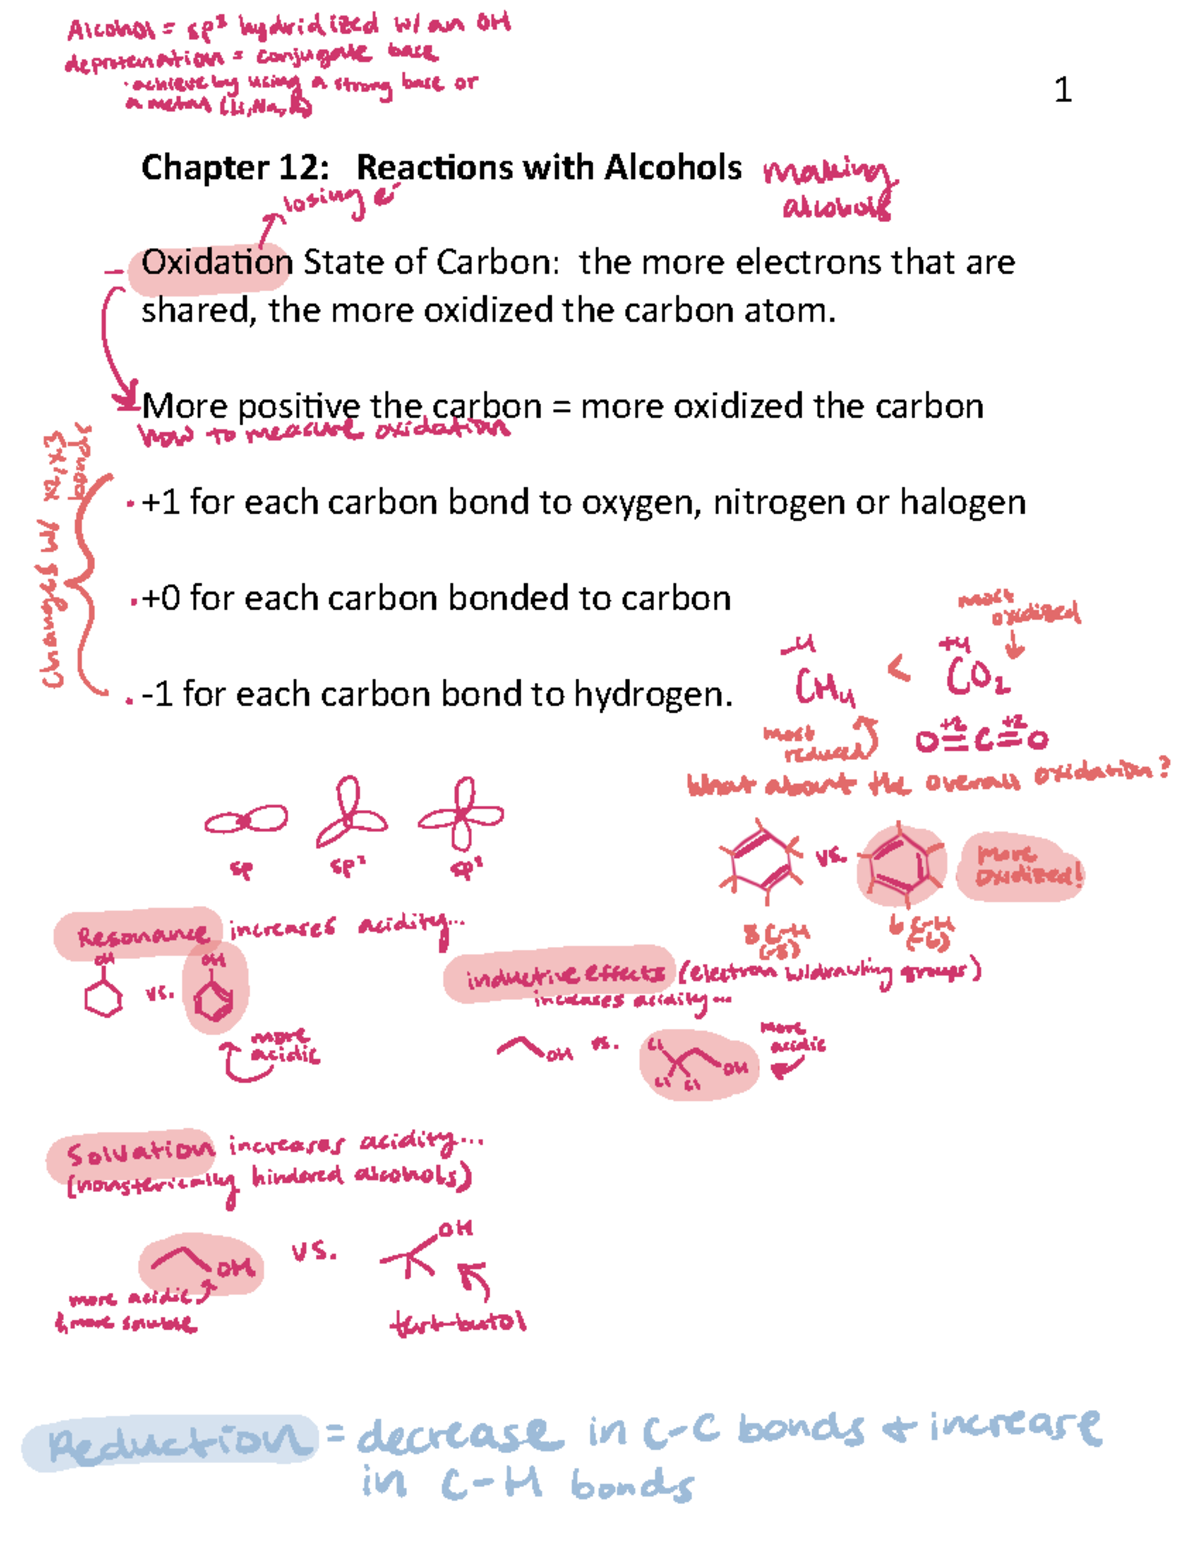 Alcohol = sp³ hydridized w/ an OH
deprotenation = conjugate base
· achieve by using a strong base or
a metal (Li, Na, K)
1
Chapter 12: Reactions with Alcohols making
alcohols
losing e⁻
- Oxidation State of Carbon: the more electrons that are
shared, the more oxidized the carbon atom.
More positive the carbon = more oxidized the carbon
how to measure oxidation
changes w/ x2, x3
bonds
· +1 for each carbon bond to oxygen, nitrogen or halogen
· +0 for each carbon bonded to carbon
· -1 for each carbon bond to hydrogen.
most
oxidized
-4 +4
CH₄ < CO₂
most
reduced
+2 +2
O=C=O
What about the overall oxidation?
sp sp² sp³
vs. more
oxidized!
8 C-H 6 C-H
(-8) (-6)
Resonance increases acidity...
OH vs. OH
more
acidic
inductive effects (electron w/drawling groups)
increases acidity...
OH vs. Cl Cl Cl OH
more
acidic
Solvation increases acidity...
(nonsterically hindered alcohols)
OH vs. OH
more acidic
& more soluble
tert-butol
Reduction = decrease in C-C bonds + increase
in C-H bonds